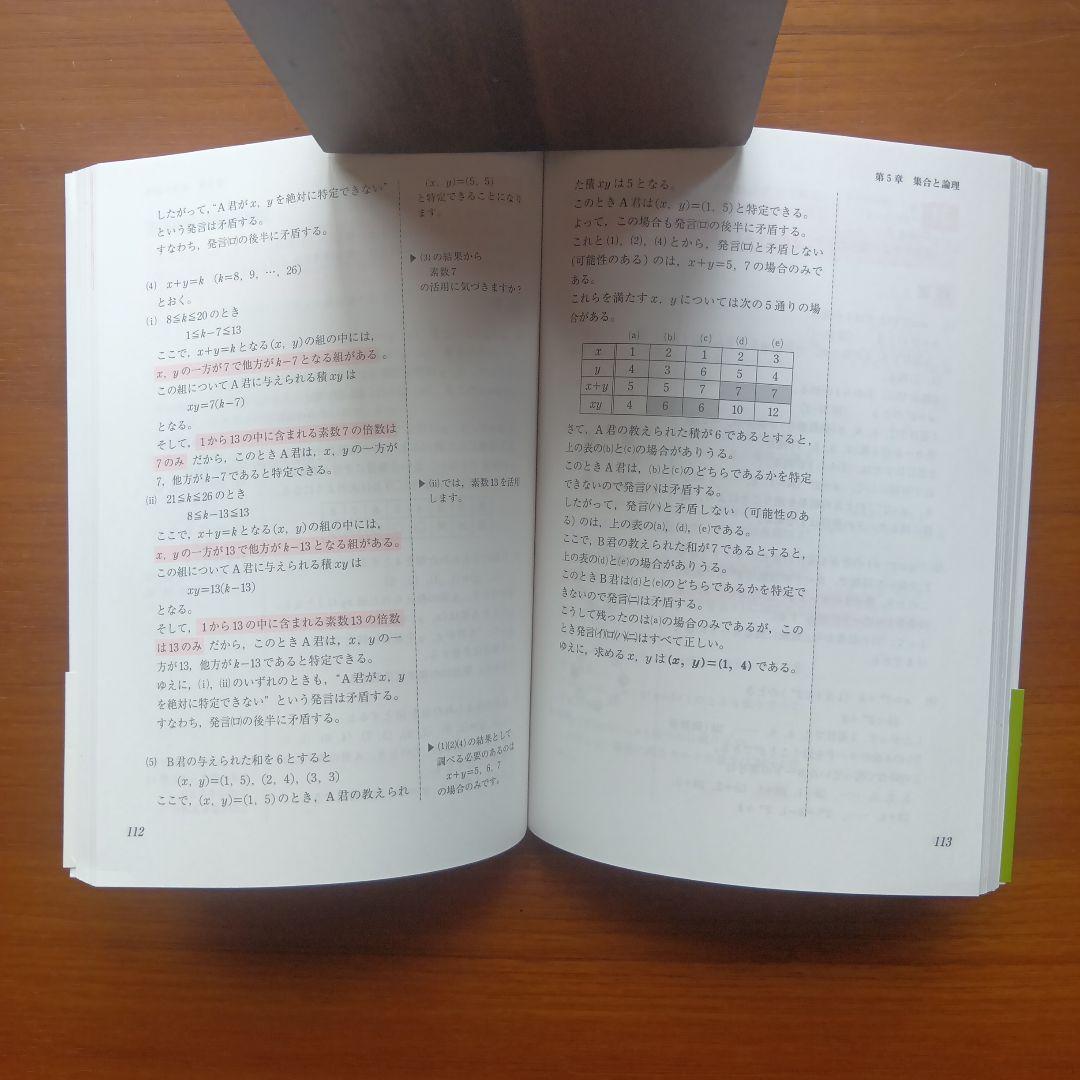 したがって，“A君がx，yを絶対に特定できない”
という発言は矛盾する。
すなわち，発言(ロ)の後半に矛盾する。
(4) x+y=k (k=8，9，…，26)
とおく。
(i) 8≦k≦20のとき
1≦k−7≦13
ここで，x+y=kとなる(x，y)の組の中には，
x，yの一方が7で他方がk−7となる組がある。
この組についてA君に与えられる積xyは
xy=7(k−7)
となる。
そして，1から13の中に含まれる素数7の倍数は
7のみ だから，このときA君は，x，yの一方が
7，他方がk−7であると特定できる。
(ii) 21≦k≦26のとき
8≦k−13≦13
ここで，x+y=kとなる(x，y)の組の中には，
x，yの一方が13で他方がk−13となる組がある。
この組についてA君に与えられる積xyは
xy=13(k−13)
となる。
そして，1から13の中に含まれる素数13の倍数
は13のみ だから，このときA君は，x，yの一
方が13，他方がk−13であると特定できる。
ゆえに，(i)，(ii)のいずれのときも，“A君がx，y
を絶対に特定できない”という発言は矛盾する。
すなわち，発言(ロ)の後半に矛盾する。
(5) B君の与えられた和を6とすると
(x，y)=(1，5)，(2，4)，(3，3)
ここで，(x，y)=(1，5)のとき，A君の教えられ
112
(x，y)=(5，5)
と特定できることになり
ます。
▶(3)の結果から
素数7
の活用に気づきますか?
▶(ii)では，素数13を活用
します。
▶(1)(2)(4)の結果として
調べる必要のあるのは
x+y=5，6，7
の場合のみです。
第5章 集合と論理
た積xyは5となる。
このときA君は(x，y)=(1，5)と特定できる。
よって，この場合も発言(ロ)の後半に矛盾する。
これと(1)，(2)，(4)とから，発言(ロ)と矛盾しない
(可能性のある)のは，x+y=5，7の場合のみで
ある。
これらを満たすx，yについては次の5通りの場
合がある。
(a) (b) (c) (d) (e)
x 1 2 1 2 3
y 4 3 6 5 4
x+y 5 5 7 7 7
xy 4 6 6 10 12
さて，A君の教えられた積が6であるとすると，
上の表の(b)と(c)の場合がありうる。
このときA君は，(b)と(c)のどちらであるかを特定
できないので発言(ハ)は矛盾する。
したがって，発言(ハ)と矛盾しない（可能性のあ
る）のは，上の表の(a)，(d)，(e)である。
ここで，B君の教えられた和が7であるとすると，
上の表の(d)と(e)の場合がありうる。
このときB君は(d)と(e)のどちらであるかを特定で
きないので発言(ニ)は矛盾する。
こうして残ったのは(a)の場合のみであるが，この
とき発言(イ)(ロ)(ハ)(ニ)はすべて正しい。
ゆえに，求めるx，yは(x，y)=(1，4)である。
113